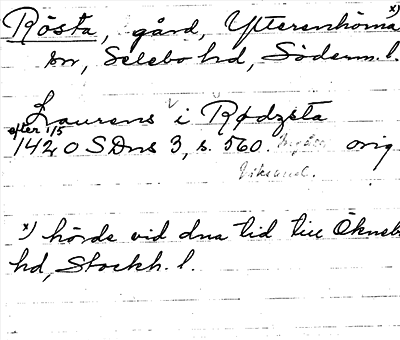 Rösta, gård, Ytterenhörna x)
sn, Selebo hd, Söderm. l.
Laurens i Rødzsta
efter 1/5
1420 SDns 3, s. 560. orig
x) hörde vid dna tid till Öknebo
hd, Stockh. l.